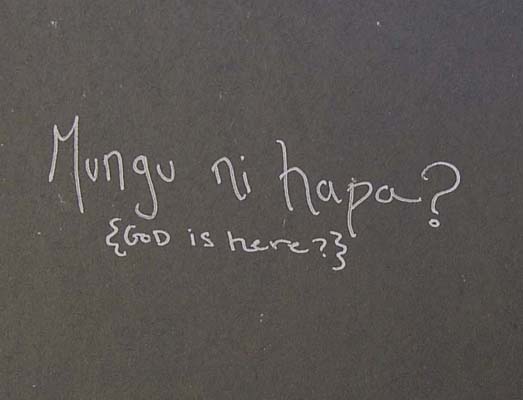 Mungu ni hapa?
{GOD is here?}